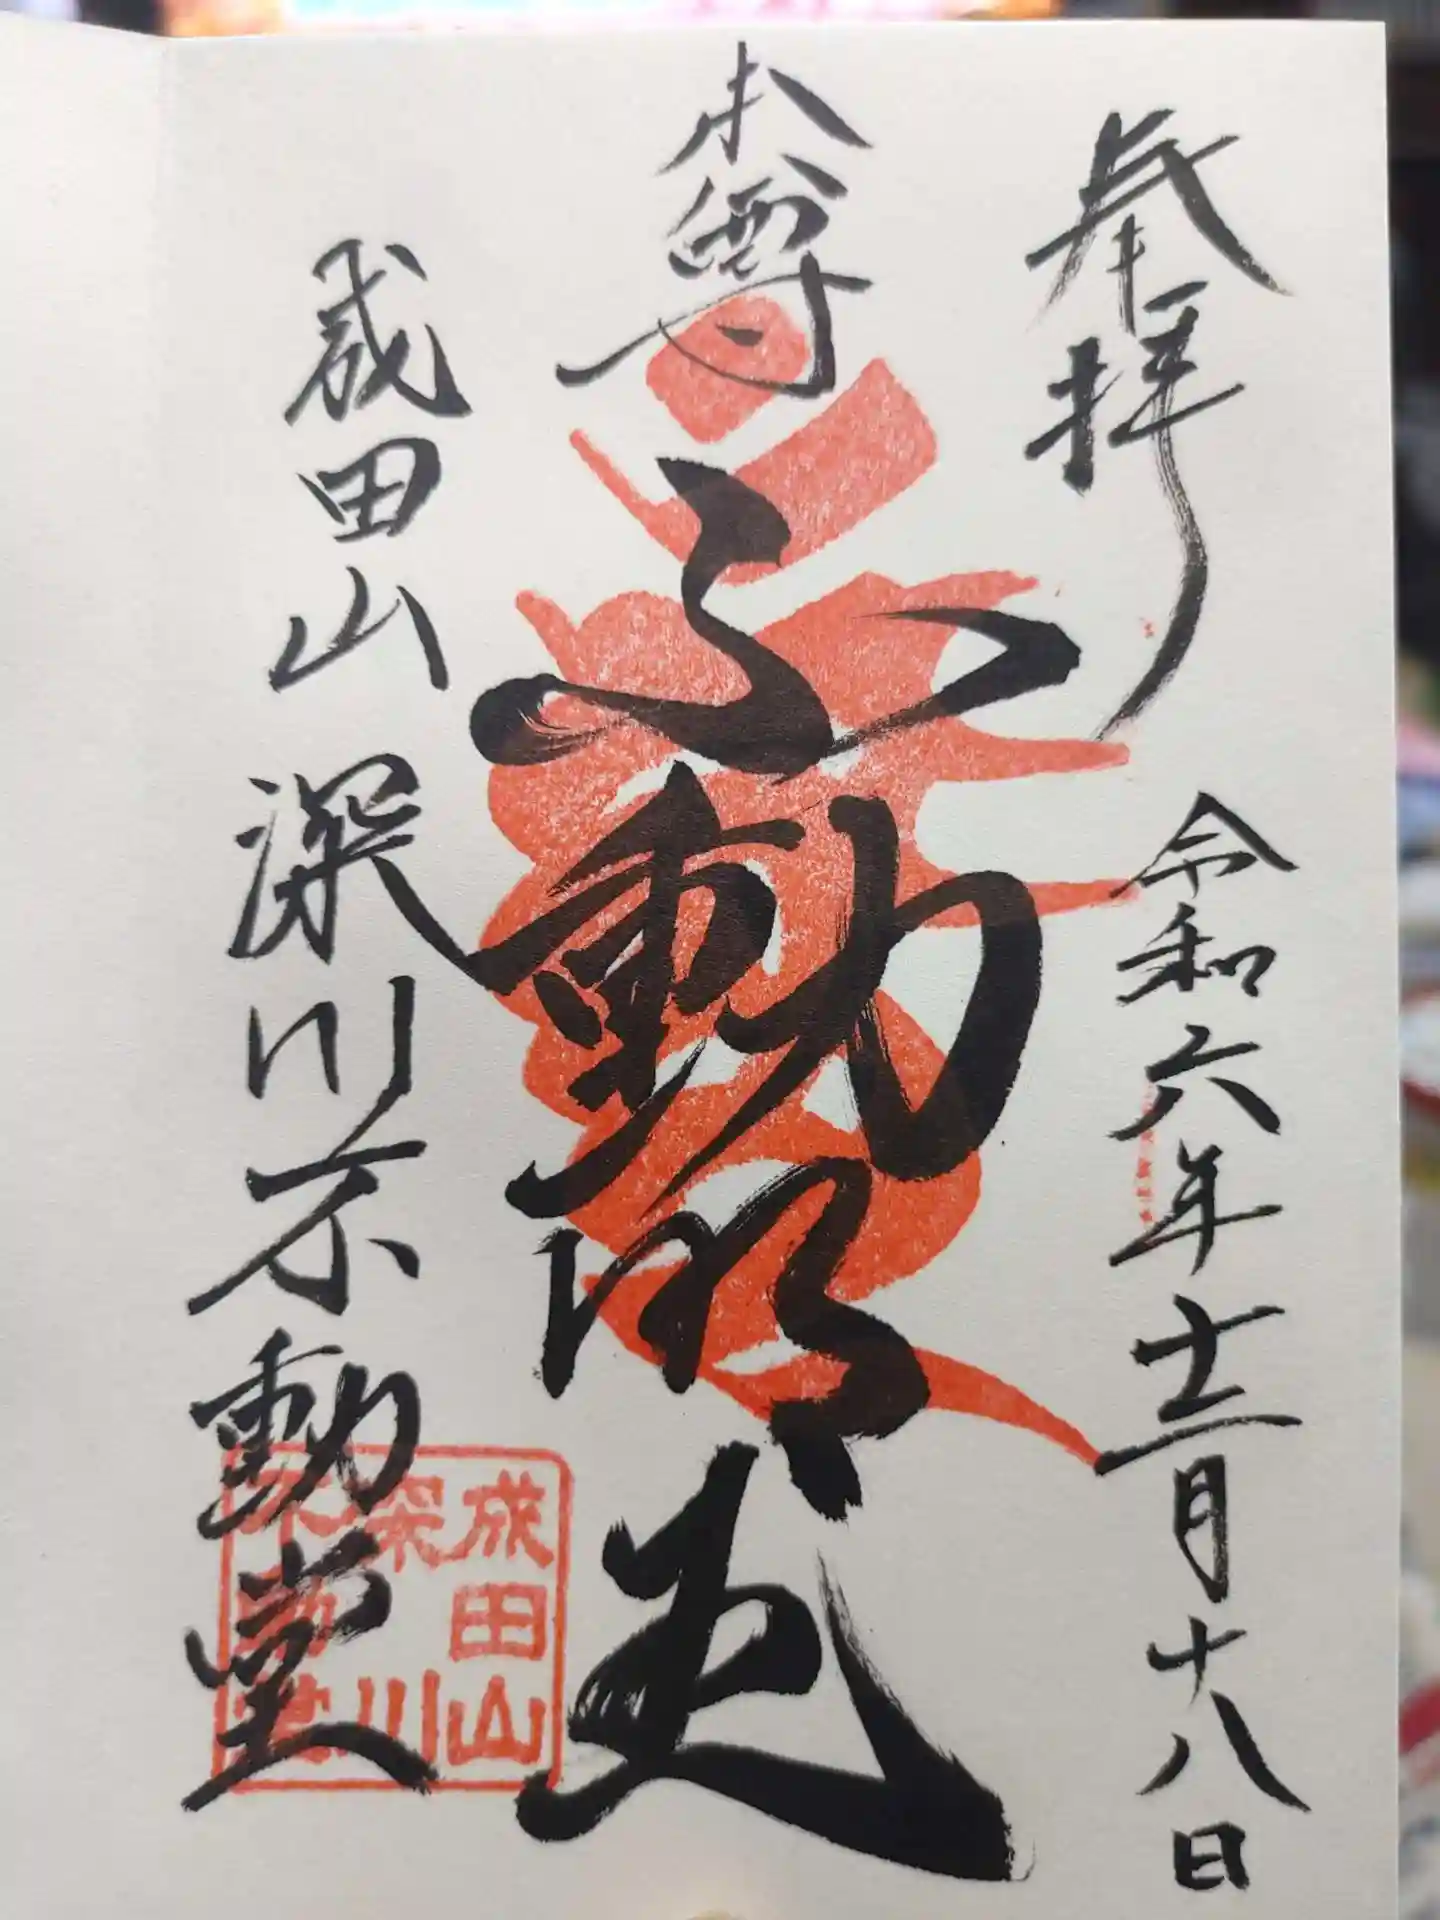 奉拝
令和六年十二月十八日
本尊
不動明王
成田山 深川不動堂
成田山
深川
不動堂